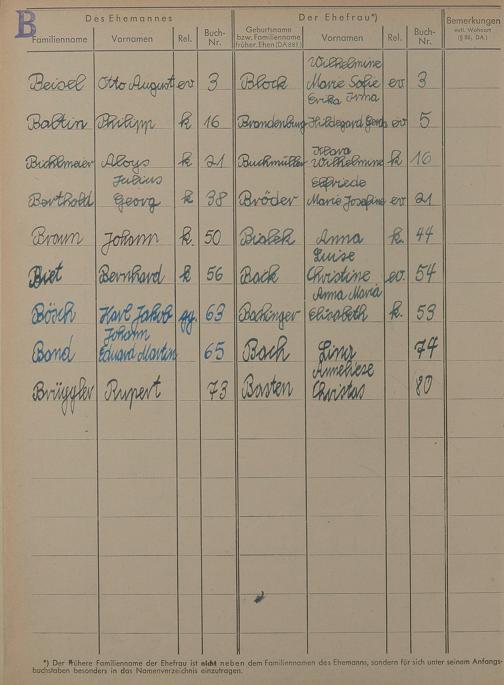 B
Des Ehemannes Der Ehefrau*) Bemerkungen
Familienname Vornamen Rel. Buch-Nr. Geburtsname bzw. Familienname früher. Ehen (DA 88) Vornamen Rel. Buch-Nr. evtl. Wohnort (§ 88, DA.)
Wilhelmine
Beisel Otto August ev 3 Block Marie Sofie ev 3
Erika Irma
Baltin Philipp k 16 Brandenburg Hildegard Gerda ev 5
Klara
Bichlmeier Aloys k 21 Buchmüller Wilhelmine k 16
Julius Elfriede
Berthold Georg k 38 Bröder Marie Josefine ev 21
Braun Johann k. 50 Bialek Anna k. 44
Luise
Biet Bernhard k 56 Back Christine ev. 54
Anna Maria
Bösch Karl Jakob gg. 63 Bachinger Elisabeth k. 53
Johann
Band Eduard Martin 65 Bach Lina 74
Anneliese
Brüggler Rupert 73 Basten Christas 80
*) Der frühere Familienname der Ehefrau ist nicht neben dem Familiennamen des Ehemanns, sondern für sich unter seinem Anfangs-
buchstaben besonders in das Namenverzeichnis einzutragen.